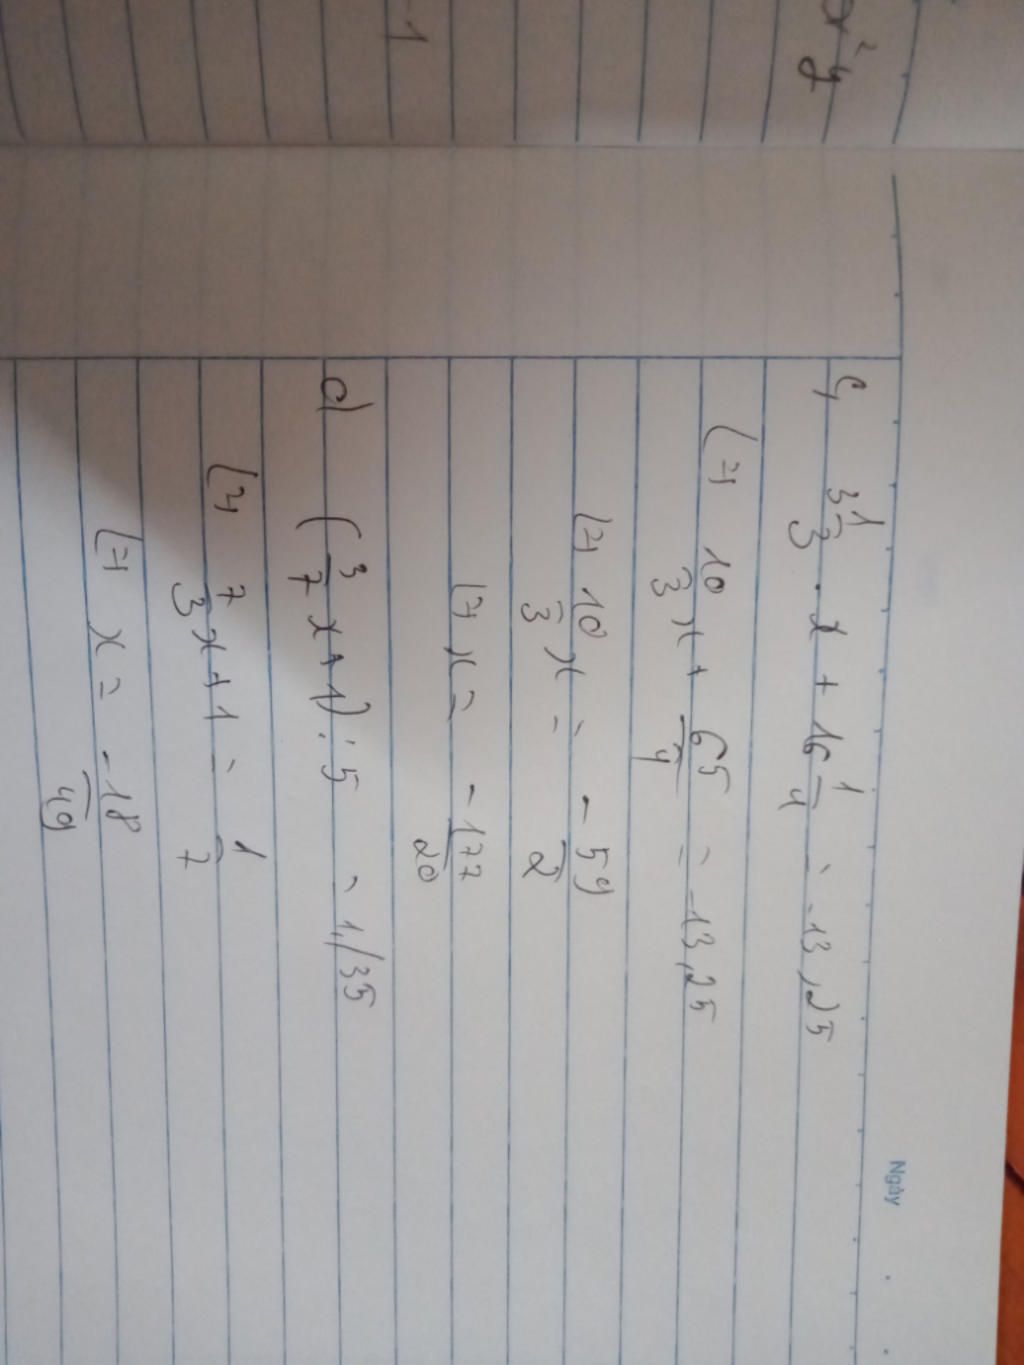 x²y
-1
Ngày
c, 3 1/3 . x + 16 1/4 = -13,25
(=) 10/3 x + 65/4 = -13,25
(=) 10/3 x = -59/2
(=) x = -177/20
d) (3/7 x + 1) : 5 = 1/35
(=) 7/3 x + 1 = 1/7
(=) x = -18/49